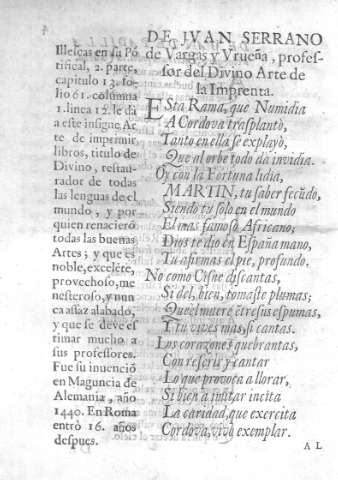 DE JVAN SERRANO
de Vargas y Vrueña, profes-
sor del Divino Arte de
la Imprenta.
ESta Rama, que Numidia
A Cordova trasplantò,
Tanto en ella se explayò,
Que al orbe todo dà invidia.
Oy con la Fortuna lidia,
MARTIN, tu saber fecũdo,
Siendo tu solo en el mundo
El mas famoso Africano;
Dios te dio en España mano,
Tu afirmas el pie, profundo.
No como Cisne discantas,
Si del, bien, tomaste plumas;
Quel muere ẽtre sus espumas,
Y tu vives mas, si cantas.
Los coraçones quebrantas,
Con referir y cantar
Lo que provoca a llorar,
Si bien a imitar incita
La caridad, que exercita
Cordova, vivo exemplar.
Illescas en su Põ
tifical, 2. parte,
capitulo 13. fo-
lio 61. columna
1. linea 12. le dà
a este insigne Ar
te de imprimir
libros, titulo de
Divino, restau-
rador de todas
las lenguas de el
mundo, y por
quien renacierõ
todas las buenas
Artes; y que es
noble, excelẽte,
provechoso, me
nesteroso, y nun
ca assaz alabado,
y que se deve es
timar mucho a
sus professores.
Fue su invenciõ
en Maguncia de
Alemania, año
1440. En Roma
entrò 16. años
despues.
AL